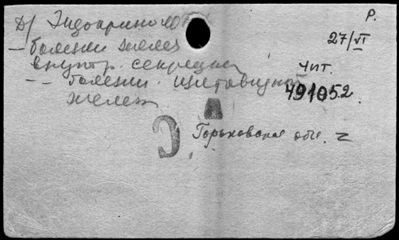 Р.
Д/ Эндокринолог
27/VI
– болезни желез
внутр. секреции
Чит.
– – болезни щитовидной
491052
железы
Горьковская обл. г